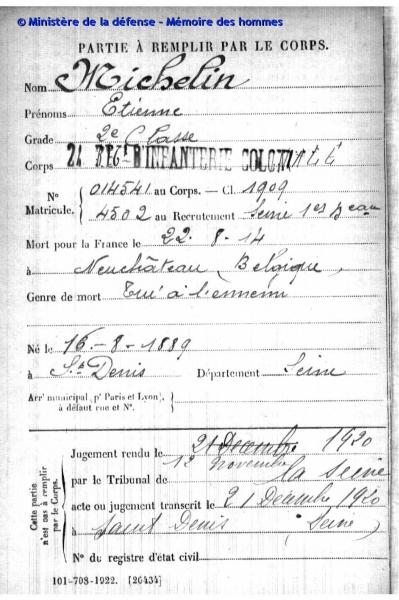 © Ministère de la défense - Mémoire des hommes
PARTIE À REMPLIR PAR LE CORPS.
Nom Michelin
Prénoms Etienne
Grade 2e Classe
Corps RÉGT D'INFANTERIE COLONIALE
N° Matricule. { 014541 au Corps. — Cl. 1909
4502 au Recrutement Seine 1er Beau
Mort pour la France le 22 - 8 - 14
à Neuchâteau, Belgique,
Genre de mort Tué à l'ennemi
Né le 16 - 8 - 1889
à St Denis Département Seine
Arrt municipal (pr Paris et Lyon), à défaut rue et N°. {
Cette partie n'est pas à remplir par le Corps.
Jugement rendu le 21 Décembre 1920
12 novembre
par le Tribunal de la Seine
acte ou jugement transcrit le 21 Décembre 1920
à Saint Denis (Seine)
N° du registre d'état civil
101-708-1922. [26434]